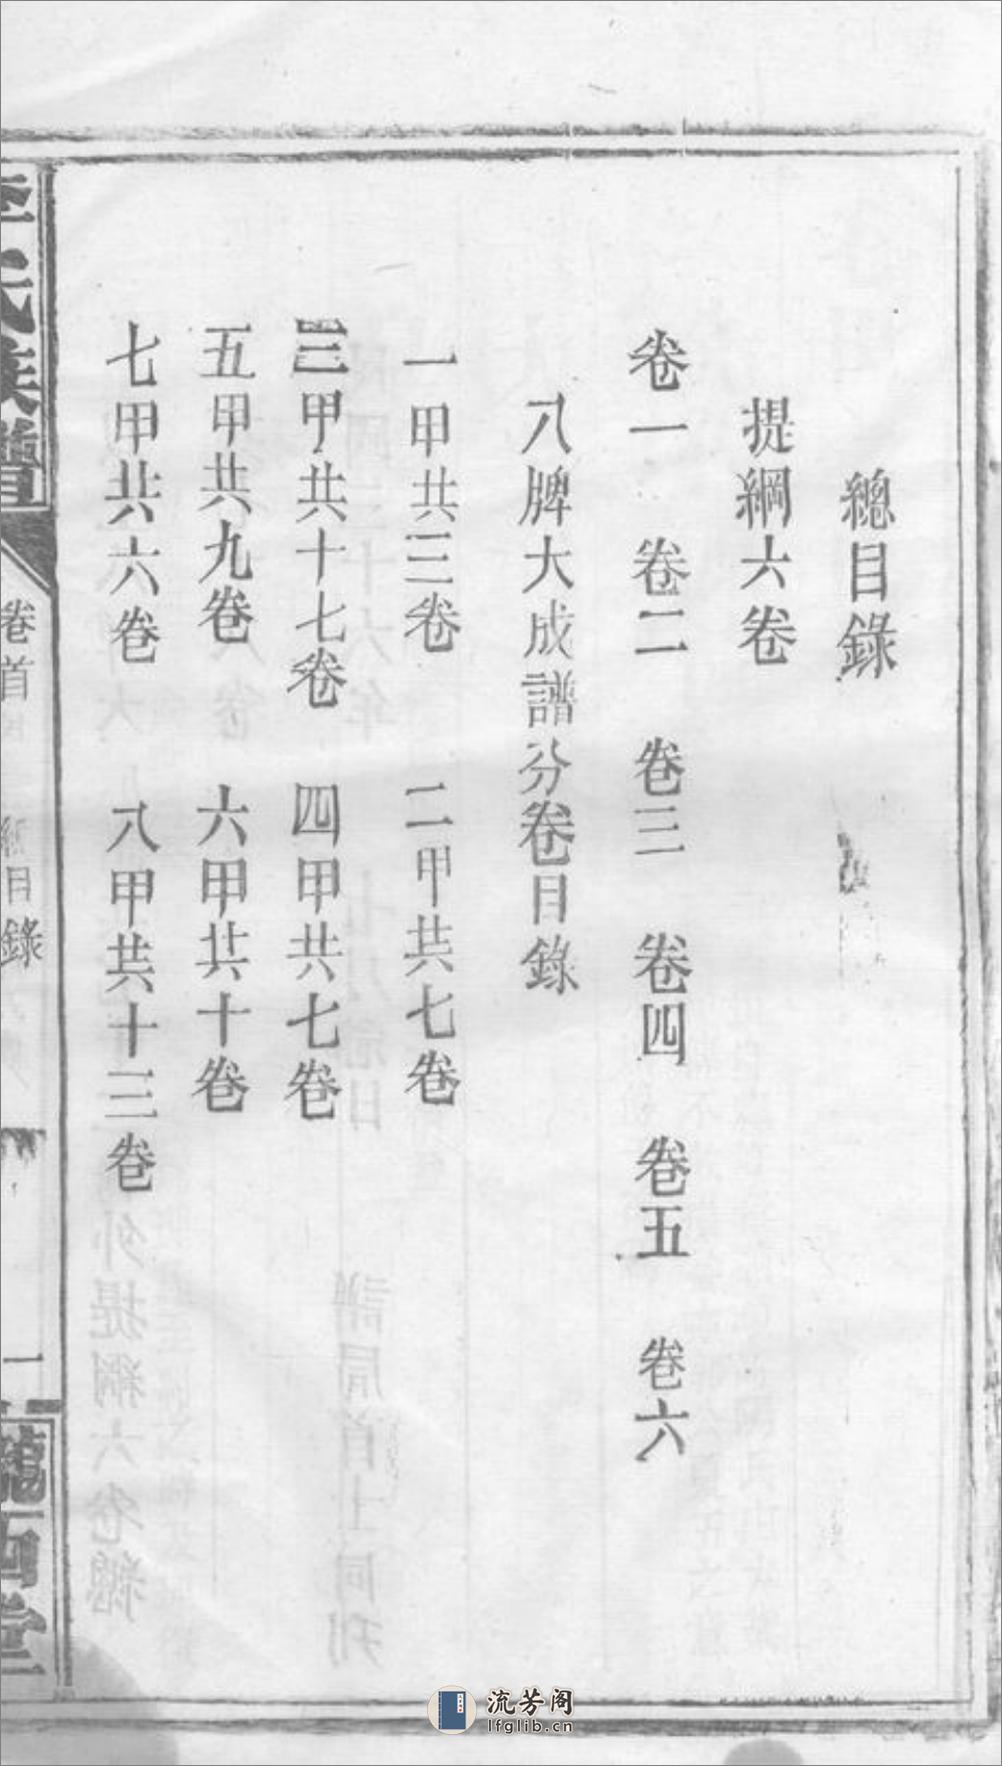 總目錄
提綱六卷
卷一 卷二 卷三 卷四 卷五 卷六
八牌大成譜分卷目錄
一甲共三卷 二甲共七卷
三甲共十七卷 四甲共七卷
五甲共九卷 六甲共十卷
七甲共六卷 八甲共十三卷
李氏族譜
卷首 總目錄
一
隴西堂
流芳阁
lfglib.cn